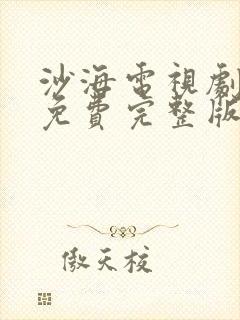 沙海電視劇
免費完整版
傲天校